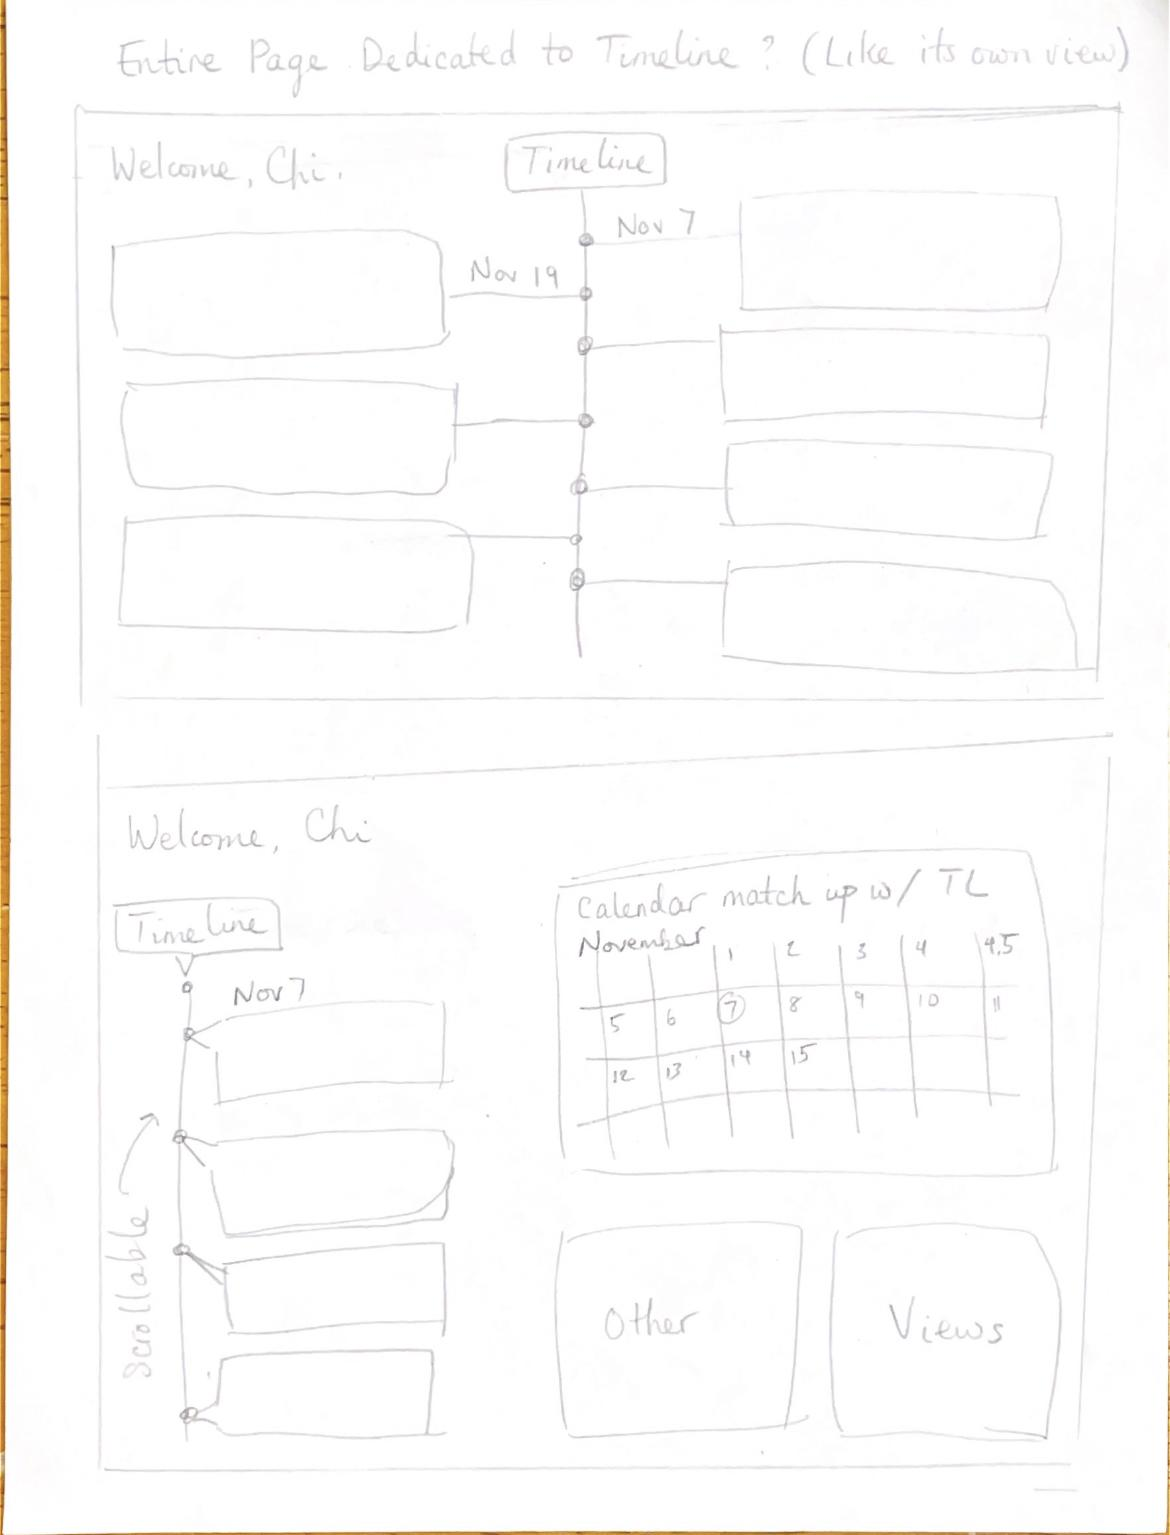 Entire Page Dedicated to Timeline? (Like its own view)
Welcome, Chi.
Timeline
Nov 7
Nov 19
Welcome, Chi
Timeline
Nov 7
Scrollable
Calendar match up w/ TL
November
1 2 3 4 4.5
5 6 7 8 9 10 11
12 13 14 15
Other
Views